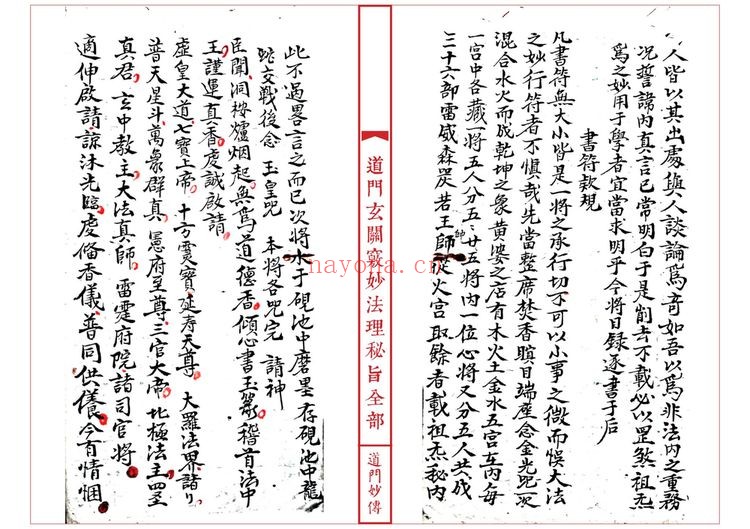 人皆以其出處與人談論爲奇如吾以爲非法內之重務
况誓諱內真言已常明白于是削去不載必以罡煞祖炁
爲之妙用于學者宜當求明乎今將目錄逐書于后
書符欵規
凡書符無大小皆是一將之承行切不可以小事之微而悞大法
之妙行符者不慎哉先當整席焚香瞑目端座念金光咒一次
混合水火而成乾坤之象黃婆之店有木火土金水五宮在內每
一宮中各藏一將五人分五五廿五將內一位心將又分五人共成
三十六部雷威森嚴若王師 火宮取餘者載祖炁秘內
帥
道門玄關竅妙法理秘旨全部
道門妙傳
此不過畧言之而已次將水于硯池中磨墨存硯池中龍
蛇交戰後念 玉皇咒 本將各咒完 請神
臣聞洞桉爐烟起無爲道德香傾心書玉篆稽首法中
王謹運真香虔誠啟請
虛皇大道七寶上帝 十方靈寶延寿天尊 大羅法界諸
普天星斗萬象群真 憲府至尊三官大帝北極法主四圣
真君 玄中教主大法真師 雷霆府院諸司官將
適伸啟請諒沐光臨虔修香儀普同供養今有情悃
nayona.cn